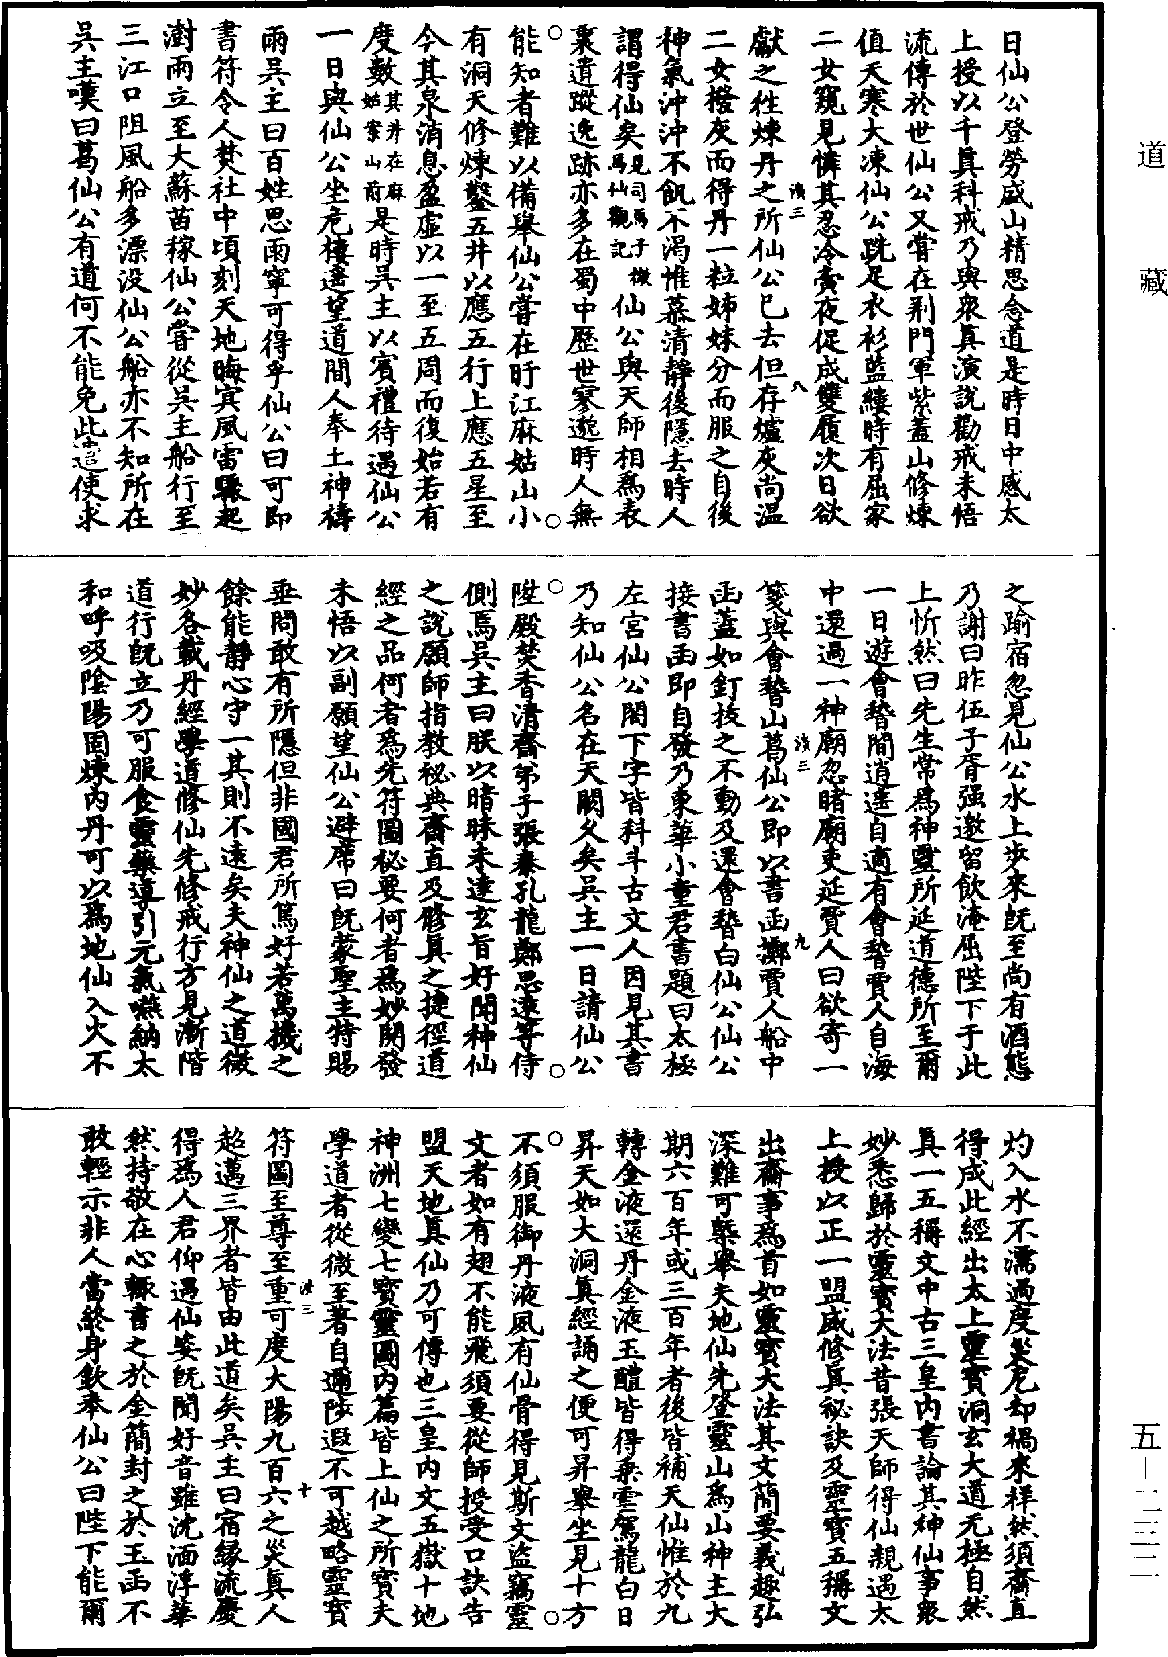 道藏
日仙公登勞盛山精思念道是時日中感太
上授以千眞科戒乃與衆眞演說勸戒未悟
流傳於世仙公又嘗在荆門軍紫蓋山修煉
值天寒大凍仙公跣足衣衫藍縷時有屈家
二女窺見憐其忍冷賫夜促成雙履次日欲
獻之往煉丹之所仙公已去但存爐灰尚温
二女撥灰而得丹一粒姊妹分而服之自後
神氣沖沖不飢不渴惟慕清靜後隱去時人
謂得仙矣見司馬子微馬仙觀記仙公與天師相爲表
裏遺蹤逸跡亦多在蜀中歷世寥邈時人無
能知者難以備舉仙公嘗在盱江麻姑山小
有洞天修煉鑿五井以應五行上應五星至
今其泉消息盈虛以一至五周而復始若有
度數其井在麻姑案山前是時吳主以賓禮待遇仙公
一日與仙公坐危樓遙望道間人奉土神禱
雨吳主曰百姓思雨寧可得乎仙公曰可即
書符令人焚社中頃刻天地晦冥風雷驟起
澍雨立至大蘇苗稼仙公嘗從吳主船行至
三江口阻風船多漂没仙公船亦不知所在
吳主嘆曰葛仙公有道何不能免此遣使求
之踰宿忽見仙公水上步來旣至尚有酒態
乃謝曰昨伍子胥强邀留飲淹屈陛下于此
上忻然曰先生常爲神靈所延道德所至爾
一日遊會稽間逍遥自適有會稽賈人自海
中還過一神廟忽睹廟吏延賈人曰欲寄一
箋與會稽山葛仙公即以書函擲賈人船中
函蓋如釘拔之不動及還會稽白仙公仙公
接書函即自發乃東華小童君書題曰太極
左宮仙公閣下字皆科斗古文人因見其書
乃知仙公名在天闕久矣吳主一日請仙公
陞殿焚香清齋弟子張泰孔龍鄭思遠等侍
側焉吳主曰朕以暗昧未達玄旨好聞神仙
之說願師指教祕典齋直及修眞之捷徑道
經之品何者爲先符圖秘要何者爲妙開發
未悟以副願望仙公避席曰旣蒙聖主特賜
垂問敢有所隱但非國君所篤好若萬機之
餘能靜心守一其則不遠矣夫神仙之道微
妙各載丹經學道修仙先修戒行方見漸階
道行旣立乃可服食靈藥導引元氣嚥納太
和呼吸陰陽固煉内丹可以爲地仙入火不
灼入水不濡過度災厄却禍來祥然須齋直
得成此經出太上靈寶洞玄大道无極自然
眞一五稱文中古三皇内書論其神仙事衆
妙悉歸於靈寶大法昔張天師得仙親遇太
上授以正一盟威修眞祕訣及靈寶五稱文
出齋事爲首如靈寶大法其文簡要義趣弘
深難可槩舉夫地仙先登靈山爲山神主大
期六百年或三百年者後皆補天仙惟於九
轉金液還丹金液玉醴皆得乘雲駕龍白日
昇天如大洞眞經誦之便可昇舉坐見十方
不須服御丹液夙有仙骨得見斯文盜竊靈
文者如有翅不能飛須要從師授受口訣告
盟天地眞仙乃可傳也三皇内文五嶽十地
神洲七變七寶靈圖内篇皆上仙之所寶夫
學道者從微至著自邇陟遐不可越略靈寶
符圖至尊至重可度大陽九百六之災眞人
超邁三界者皆由此道矣吳主曰宿緣流慶
得爲人君仰遇仙姿旣聞好音雖沈湎浮華
然持敬在心輒書之於金簡封之於玉函不
敢輕示非人當終身欽奉仙公曰陛下能爾
五—一二三二